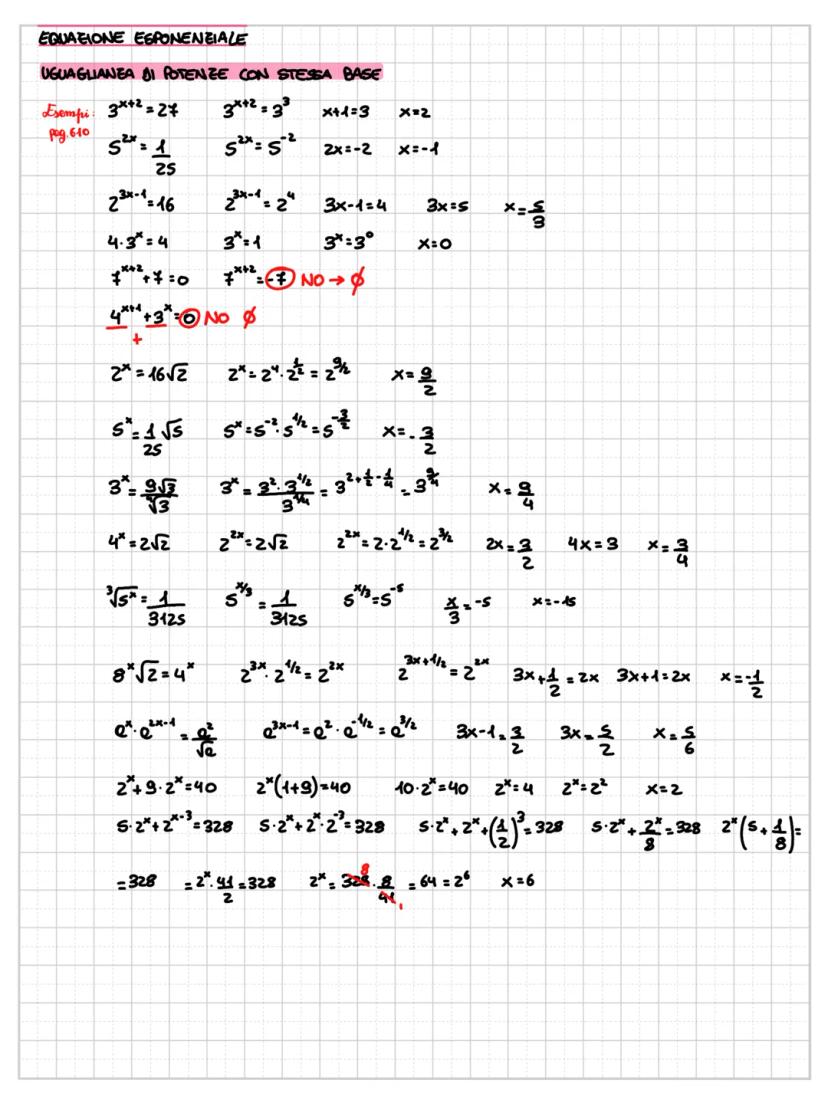 EQUAZIONE ESPONENZIALE
UGUAGLIANZA DI POTENZE CON STESSA BASE
Esempi: pag. 610
3^(x+2) = 27   3^(x+2) = 3^3   x+1=3   x=2
5^(2x) = 1/25   5^(2x) = 5^(-2)   2x=-2   x=-1
2^(3x-1) = 16   2^(3x-1) = 2^4   3x-1=4   3x=5   x=5/3
4·3^x = 4   3^x = 1   3^x = 3^0   x=0
7^(x+2) + 7 = 0   7^(x+2) = -7 NO → ∅
4^(x+1) + 3^x = 0 NO ∅
+
2^x = 16√2   2^x = 2^4 · 2^(1/2) = 2^(9/2)   x = 9/2
5^x = 1/25 √5   5^x = 5^(-2) · 5^(1/2) = 5^(-3/2)   x = -3/2
3^x = 9√3/∜3   3^x = 3^2 · 3^(1/2) / 3^(1/4) = 3^(2+1/2-1/4) = 3^(9/4)   x = 9/4
4^x = 2√2   2^(2x) = 2√2   2^(2x) = 2·2^(1/2) = 2^(3/2)   2x = 3/2   4x=3   x = 3/4
∛(5^x) = 1/3125   5^(x/3) = 1/3125   5^(x/3) = 5^(-5)   x/3 = -5   x=-15
8^x √2 = 4^x   2^(3x) · 2^(1/2) = 2^(2x)   2^(3x+1/2) = 2^(2x)   3x+1/2 = 2x   3x+1=2x   x = -1/2
a^x · a^(2x-1) = a^2/√a   a^(3x-1) = a^2 · a^(-1/2) = a^(3/2)   3x-1 = 3/2   3x = 5/2   x = 5/6
2^x + 9·2^x = 40   2^x(1+9) = 40   10·2^x = 40   2^x = 4   2^x = 2^2   x=2
5·2^x + 2^(x-3) = 328   5·2^x + 2^x · 2^(-3) = 328   5·2^x + 2^x + (1/2)^3 = 328   5·2^x + 2^x/8 = 328   2^x (5 + 1/8) =
= 328   = 2^x · 41/2 = 328   2^x = 328 8 · 8/41 1 = 64 = 2^6   x=6